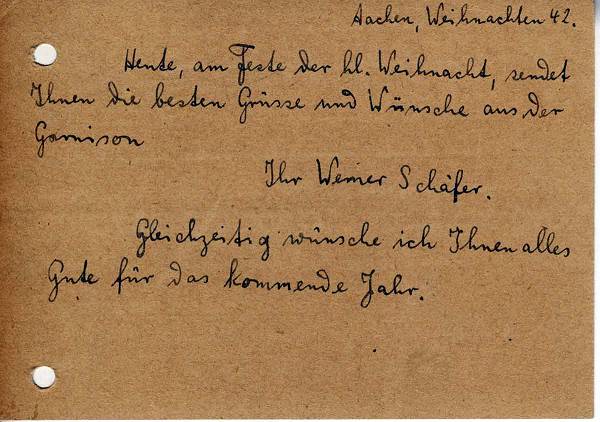 Aachen, Weihnachten 42.
Heute, am Feste der hl. Weihnacht, sendet
Ihnen die besten Grüsse und Wünsche aus der
Garnison
Ihr Werner Schäfer.
Gleichzeitig wünsche ich Ihnen alles
Gute für das kommende Jahr.